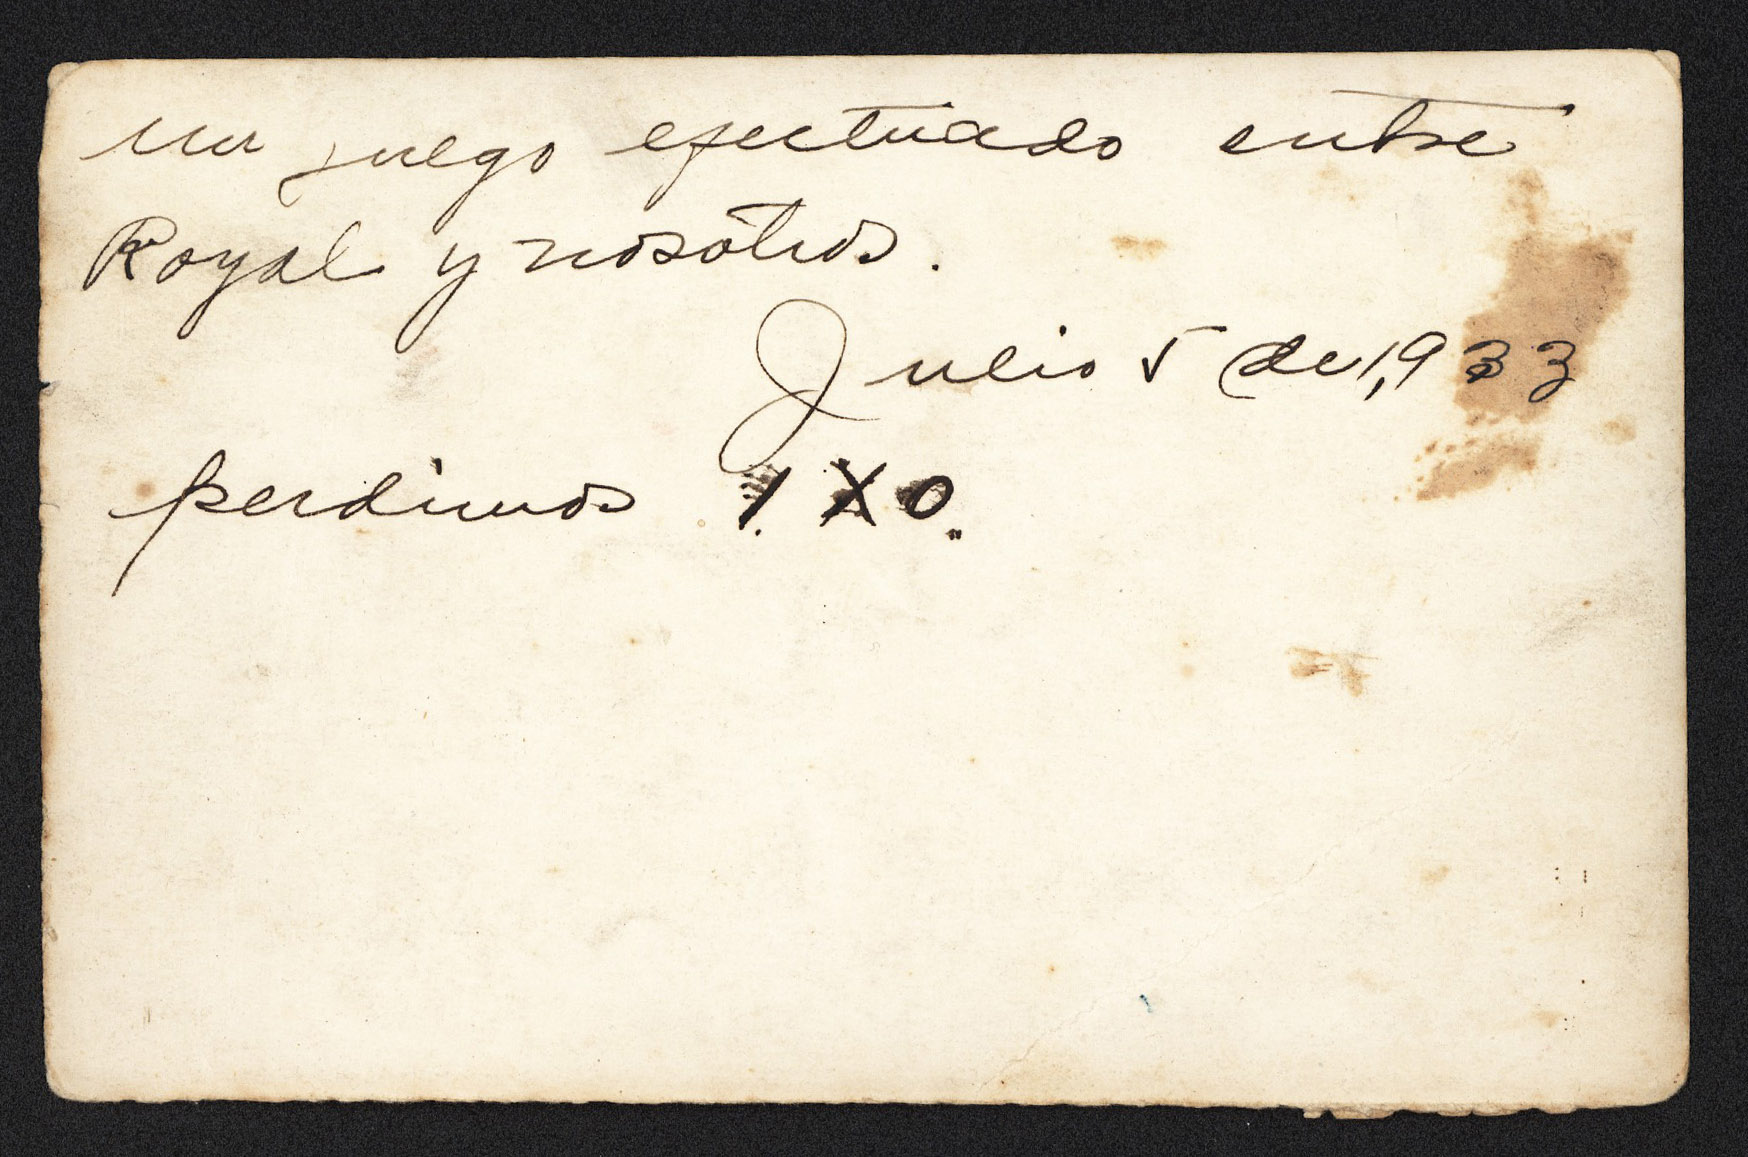 un juego efectuado entre
Royal y nosotros.
Julio 5 de 1,933
perdimos 1. X 0.